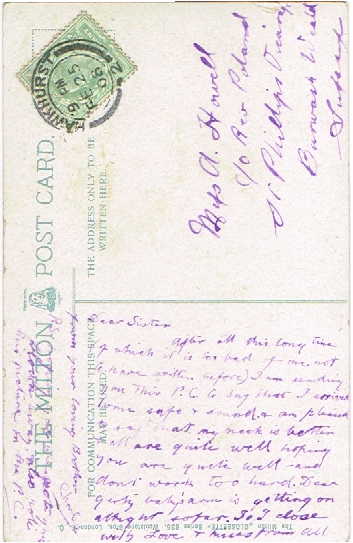 HAWKHURST
9 PM
FE 25
06
THE MILTON POST CARD.
FOR COMMUNICATION THIS SPACE MAY BE USED.
THE ADDRESS ONLY TO BE WRITTEN HERE.
Miss A. Howell
c/o Rev Poland
St Phillips Vicarage
Burwash Weald
Sussex
Dear Sister
After all this long time
(of which it is too bad of me not
to have written before) I am sending
you this P.C. to say that I arrived
home safe & sound & am pleased
to say that my neck is better
all are quite well hoping
you are quite well and
don't work to hard. Dear
is getting on
alright so far. So I close
with Love & kisses from all
from your loving Brother
The Milton "GLOSSETTE" Series 625. Woolstone Bros. London